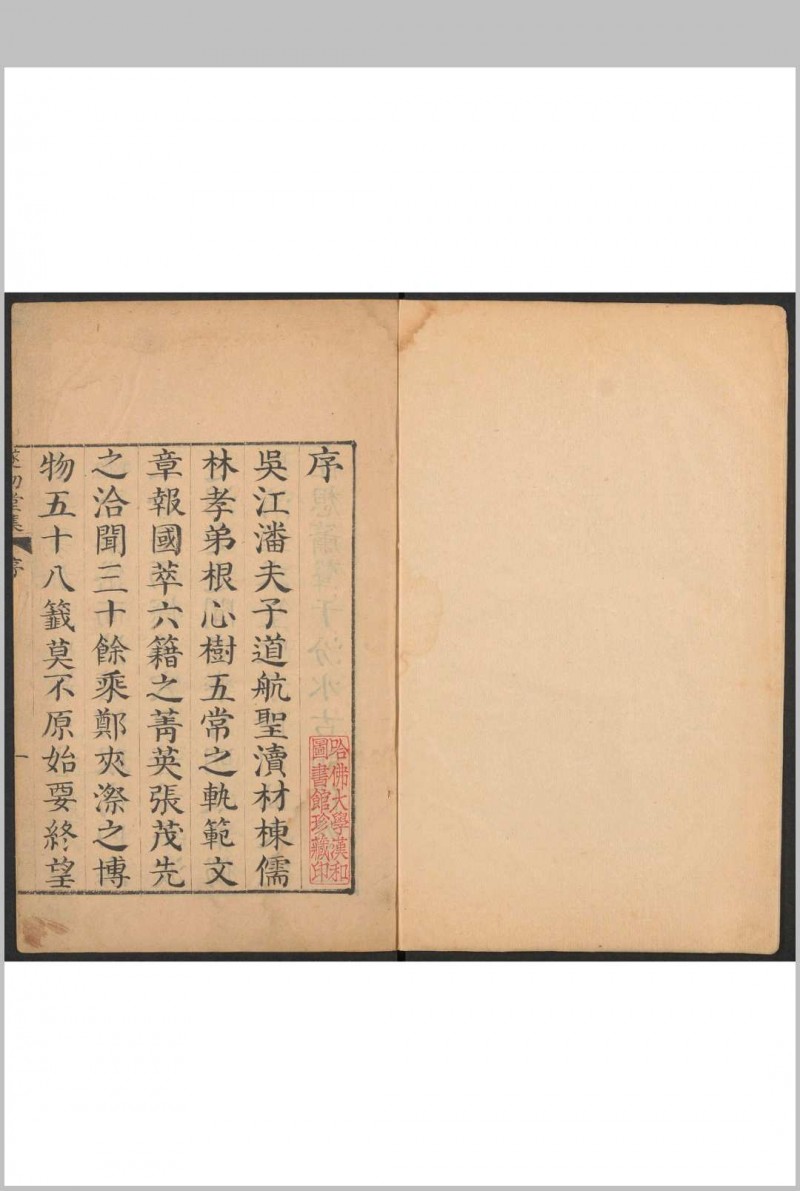 序
吳江潘夫子道航聖瀆材棟儒
林孝弟根心樹五常之軌範文
章報國萃六籍之菁英張茂先
之洽聞三十餘乘鄭夾漈之博
物五十八籖莫不原始要終望
遂初堂集 序 一
哈佛大學漢和
圖書館珍藏印